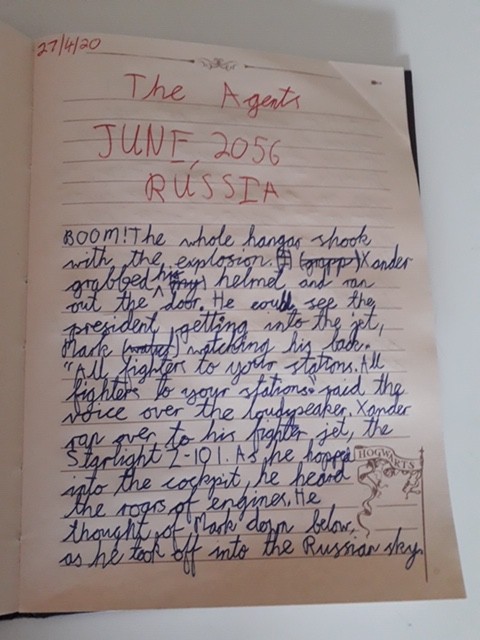 27/4/20
The Agents
JUNE, 2056
RUSSIA
BOOM! The whole hangar shook
with the explosion. (grapp) Xander
grabbed his (my) helmet and ran
out the door. He could see the
president getting into the jet,
Mark (wated) watching his back.
"All fighters to your stations. All
fighters to your stations" said the
voice over the loudspeaker. Xander
ran over to his fighter jet, the
Starlight Z-101. As he hopped
into the cockpit, he heard
the roars of engines. He
thought of Mark down below,
as he took off into the Russian sky.
HOGWARTS